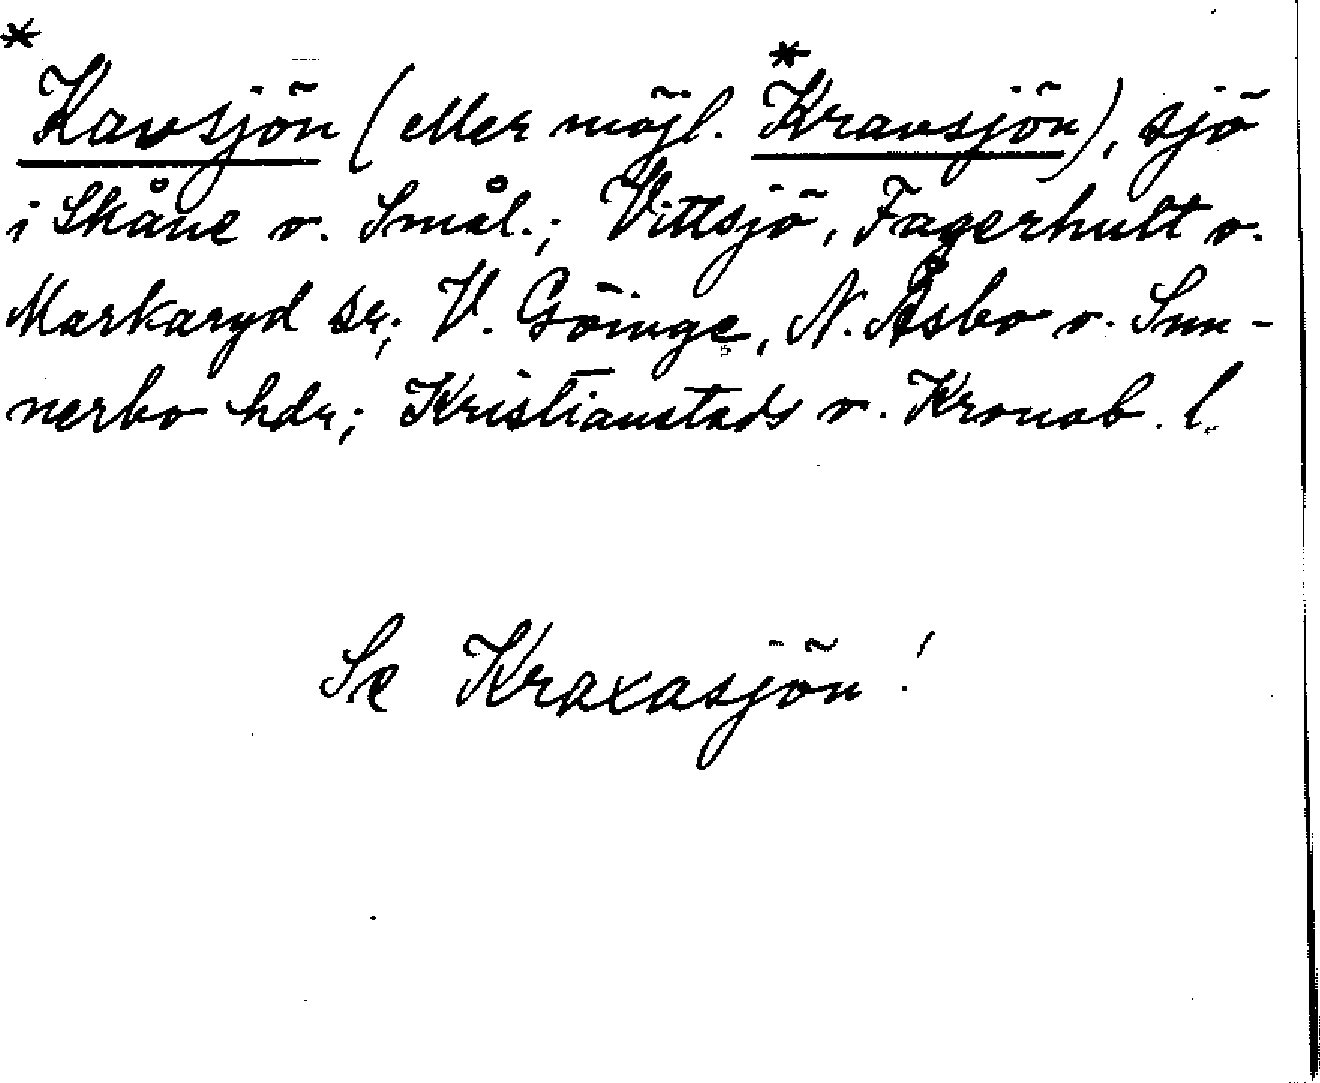 *Kavsjön (eller möjl. *Kravsjön), sjö
i Skåne o. Smål.; Vittsjö, Fagerhult o.
Markaryd sr; V. Göinge, N. Åsbo o. Sun-
nerbo hdr; Kristianstads o. Kronob. l.
Se Kraxasjön!